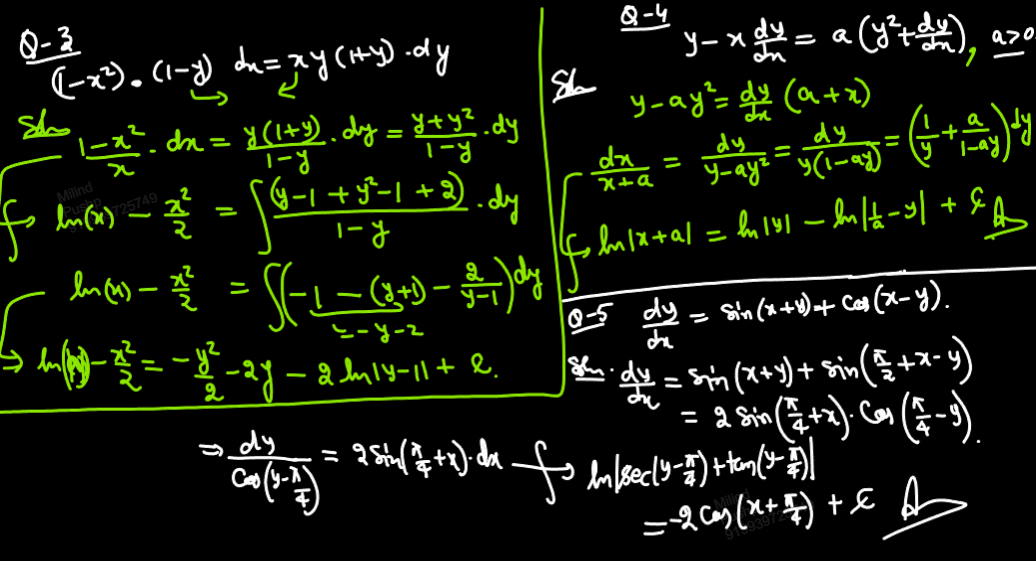 Q-3
(1-x²).(1-y) dx = xy(1+y).dy
Sln
1-x²/x . dx = y(1+y)/1-y . dy = y+y²/1-y . dy
∫→ ln(x) - x²/2 = ∫ (y-1+y²-1+2)/1-y . dy
ln(x) - x²/2 = ∫(-1-(y+1)-2/y-1)dy
=-y-2
→ ln(x) - x²/2 = -y²/2 - 2y - 2 ln|y-1| + c.
Q-4
y - x dy/dx = a(y²+dy/dx), a>0
Sln
y-ay² = dy/dx (a+x)
dx/x+a = dy/y-ay² = dy/y(1-ay) = (1/y + a/1-ay)dy
∫→ ln|x+a| = ln|y| - ln|1/a - y| + c
Q-5 dy/dx = sin(x+y)+cos(x-y).
Sln. dy/dx = sin(x+y)+sin(π/2+x-y)
= 2 sin(π/4+x).cos(π/4-y).
⇒ dy/cos(y-π/4) = 2 sin(π/4+x).dx ∫→ ln|sec(y-π/4)+tan(y-π/4)|
= -2 cos(x+π/4) + c
Milind